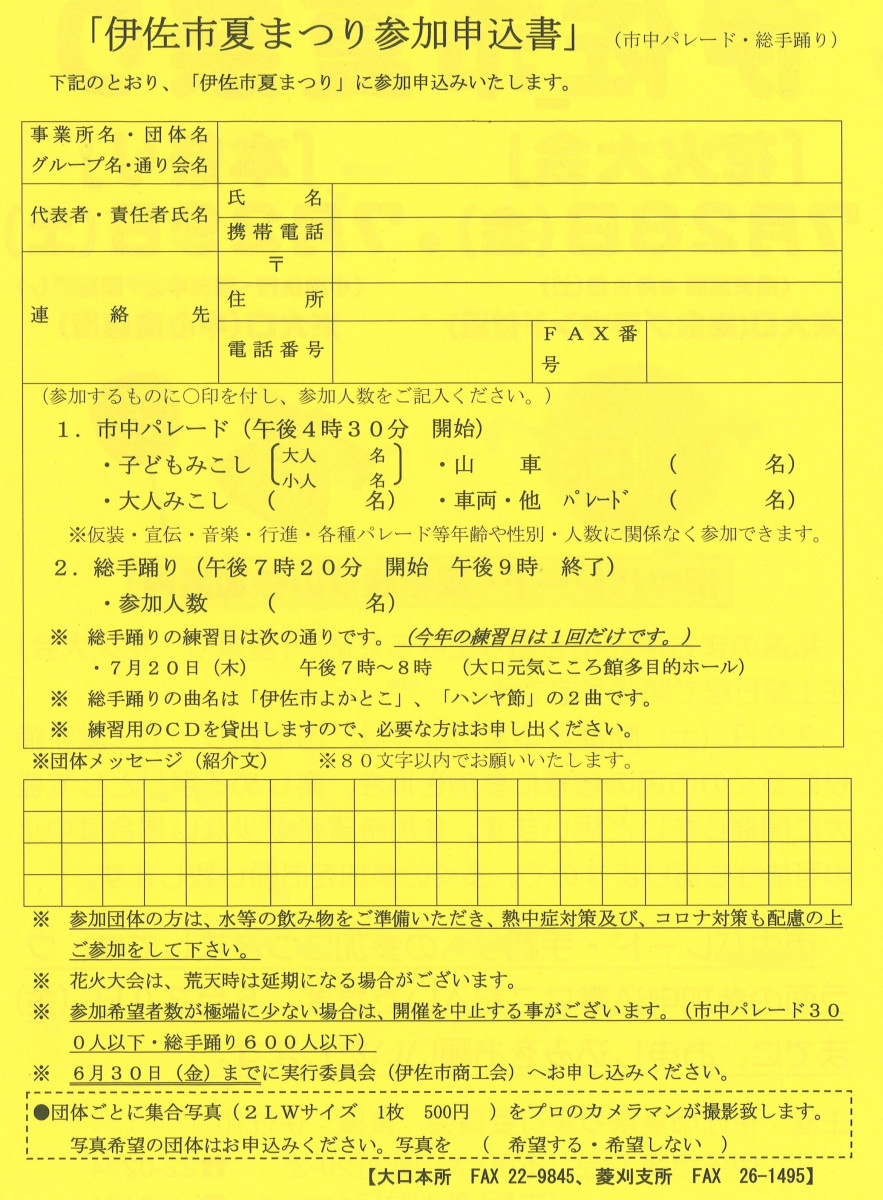 「伊佐市夏まつり参加申込書」 （市中パレード・総手踊り）
下記のとおり、「伊佐市夏まつり」に参加申込みいたします。
事業所名・団体名
グループ名・通り会名
代表者・責任者氏名
氏　　名
携帯電話
連　絡　先
〒
住　　所
電話番号
ＦＡＸ番
号
（参加するものに○印を付し、参加人数をご記入ください。）
１．市中パレード（午後４時３０分　開始）
・子どもみこし　大人　　名　・山　車　（　　　名）
小人　　名
・大人みこし　（　　　名）　・車両・他　ﾊﾟﾚｰﾄﾞ　（　　　名）
※仮装・宣伝・音楽・行進・各種パレード等年齢や性別・人数に関係なく参加できます。
２．総手踊り（午後７時２０分　開始　午後９時　終了）
・参加人数　（　　　名）
※　総手踊りの練習日は次の通りです。（今年の練習日は１回だけです。）
・７月２０日（木）　　午後７時～８時　（大口元気こころ館多目的ホール）
※　総手踊りの曲名は「伊佐市よかとこ」、「ハンヤ節」の２曲です。
※　練習用のＣＤを貸出しますので、必要な方はお申し出ください。
※団体メッセージ（紹介文）　　※８０文字以内でお願いいたします。
※　参加団体の方は、水等の飲み物をご準備いただき、熱中症対策及び、コロナ対策も配慮の上
ご参加をして下さい。
※　花火大会は、荒天時は延期になる場合がございます。
※　参加希望者数が極端に少ない場合は、開催を中止する事がございます。（市中パレード３０
０人以下・総手踊り６００人以下）
※　６月３０日（金）までに実行委員会（伊佐市商工会）へお申し込みください。
●団体ごとに集合写真（２ＬＷサイズ　1枚　500円　）をプロのカメラマンが撮影致します。
写真希望の団体はお申込みください。写真を　（　希望する・希望しない　）
【大口本所　FAX 22-9845、菱刈支所　FAX　26-1495】